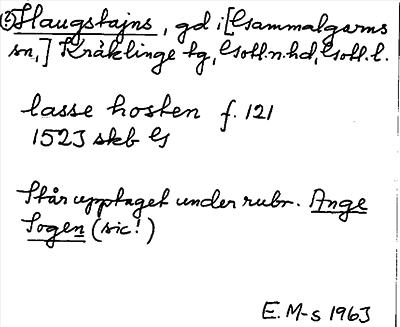 ⑤ Haugstajns, gd i [Gammalgarns
sn,] Kräklinge tg, Gotl.n.hd, Gotl.l.
lasse hosten f. 121
1523 skb G
Står upptaget under rubr. Ange
Sogen (sic!)
E. M-s 1963